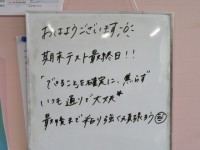 おはようございます
期末テスト最終日!!
"できることを確実に、焦らず"
いつも通りで大丈夫
最後まで粘り強く頑張ろう